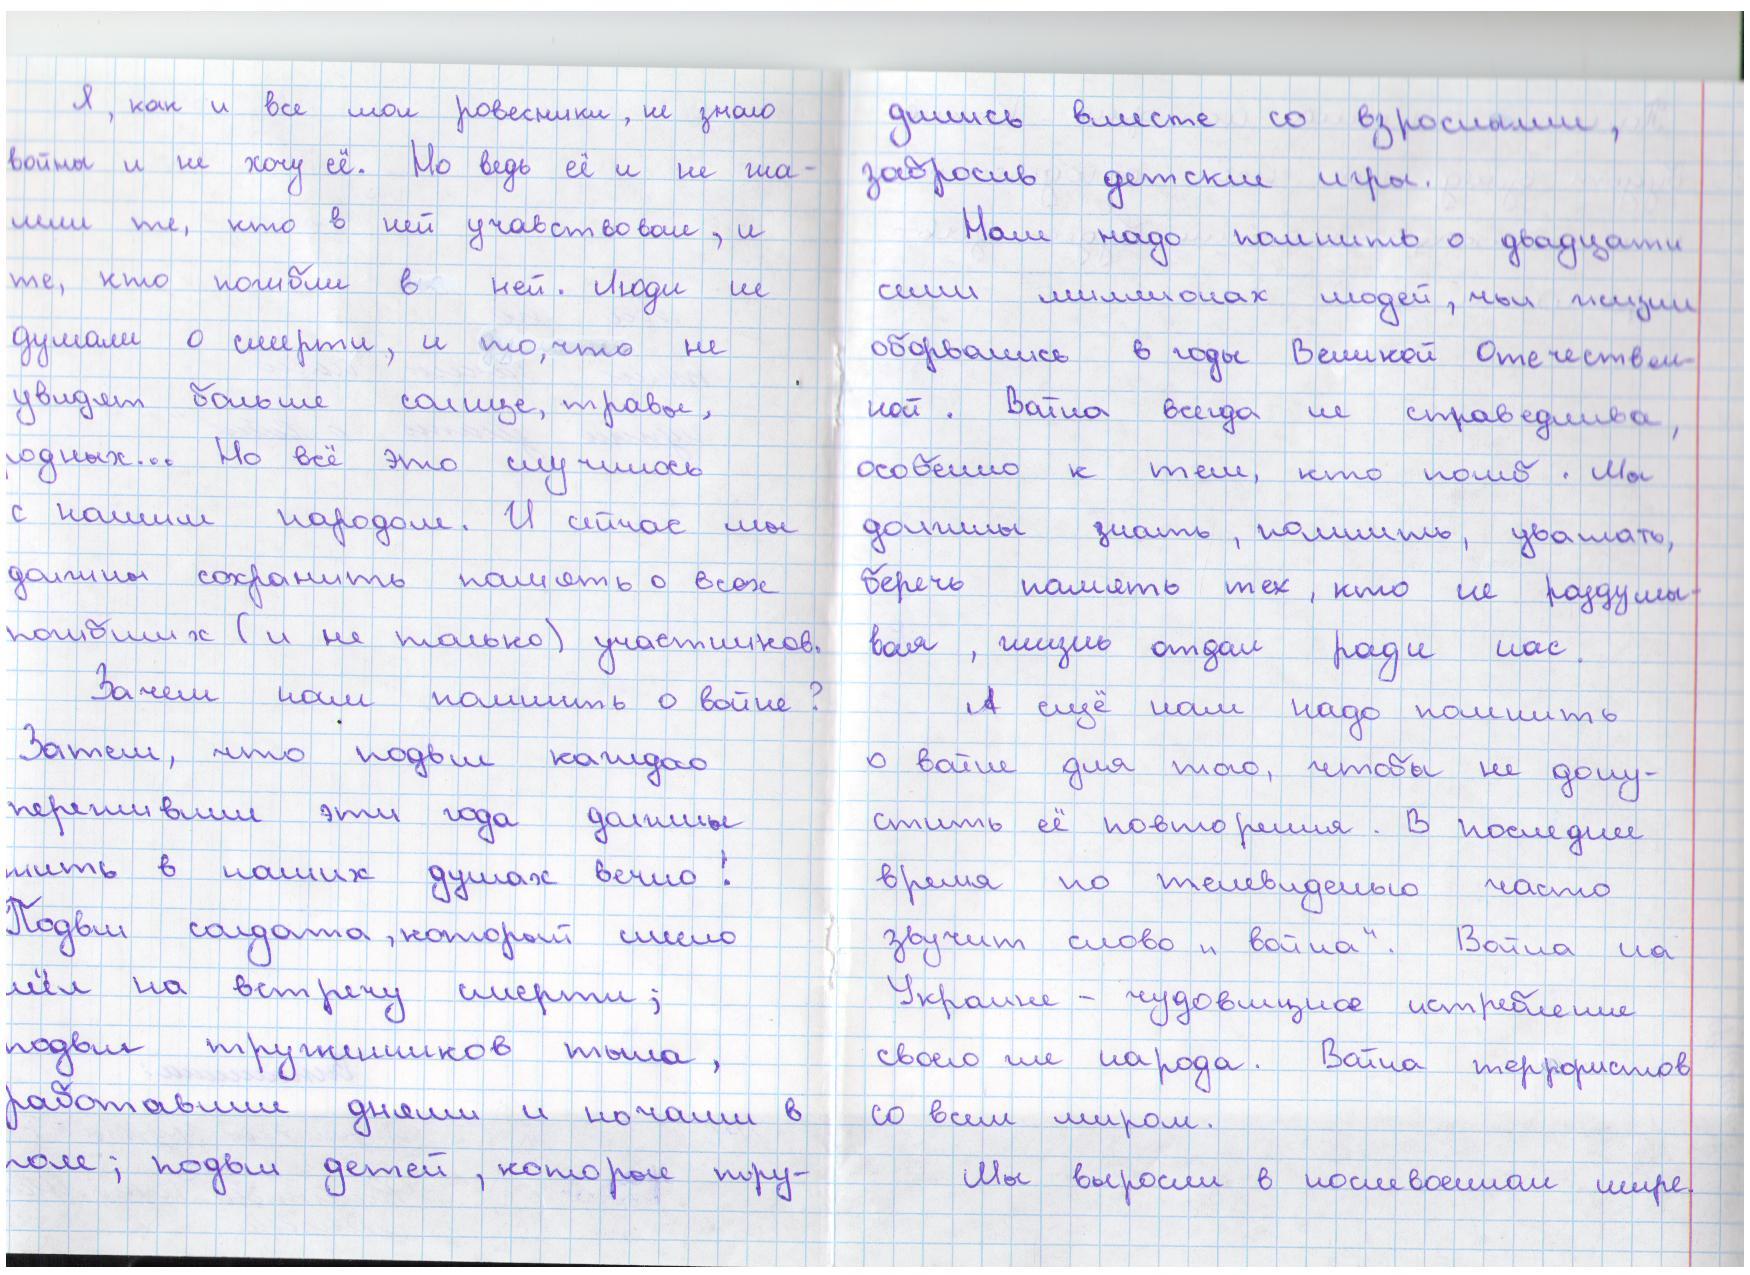 Я, как и все мои ровесники, не знаю
войны и не хочу её. Но ведь её и не жа-
лели те, кто в ней учавствовали, и
те, кто погибли в ней. Люди не
думали о смерти, и то, что не
увидят больше солнце, травы,
родных... Но всё это случилось
с нашим народом. И сейчас мы
должны сохранить память о всех
погибших (и не только) участников.
Зачем нам помнить о войне?
Затем, что подвиг каждого
переживши эти года должны
жить в наших душах вечно!
Подвиг солдата, который смело
шёл на встречу смерти;
подвиг труженников тыла,
работавшие днями и ночами в
поле; подвиг детей, которые тру-
дились вместе со взрослыми,
забросив детские игры.
Нам надо помнить о двадцати
семи миллионах людей, чьи жизни
оборвались в годы Великой Отечествен-
ной. Война всегда не справедлива,
особенно к тем, кто погиб. Мы
должны знать, помнить, уважать,
беречь память тех, кто не раздумы-
вая, жизнь отдал ради нас.
А ещё нам надо помнить
о войне для того, чтобы не допу-
стить её повторения. В последнее
время по телевиденью часто
звучит слово „война“. Война на
Украине – чудовищное истребление
своего же народа. Война террористов
со всем миром.
Мы выросли в послевоенном мире.